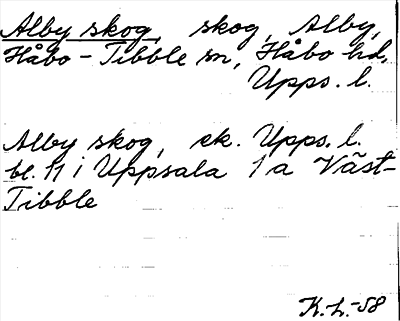 Alby skog, skog, Alby,
Håbo-Tibble sn, Håbo hd,
Upps. l.
Alby skog, ek. Upps. l.
bl. 11 i Uppsala 1 a Väst-
Tibble
K.L.-58